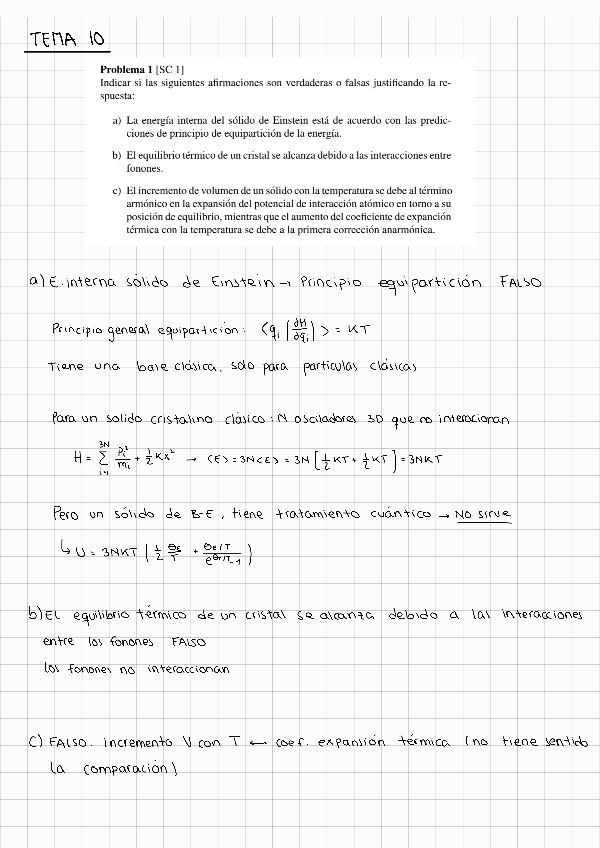 TEMA 10
Problema 1 [SC 1]
Indicar si las siguientes afirmaciones son verdaderas o falsas justificando la re-
spuesta:
a) La energía interna del sólido de Einstein está de acuerdo con las predic-
ciones de principio de equipartición de la energía.
b) El equilibrio térmico de un cristal se alcanza debido a las interacciones entre
fonones.
c) El incremento de volumen de un sólido con la temperatura se debe al término
armónico en la expansión del potencial de interacción atómico en torno a su
posición de equilibrio, mientras que el aumento del coeficiente de expansión
térmica con la temperatura se debe a la primera corrección anarmónica.
a) E. interna sólido de Einstein → Principio equipartición FALSO
Principio general equipartición: ⟨q_i (∂H/∂q_i)⟩ = KT
Tiene una base clásica, solo para partículas clásicas
Para un solido cristalino clásico: N osciladores 3D que no interacionan
H = Σ_{i=1}^{3N} P_i²/m_i + 1/2 Kx² → ⟨E⟩ = 3N⟨ε⟩ = 3N [1/2 KT + 1/2 KT] = 3NKT
Pero un sólido de B-E, tiene tratamiento cuántico → NO SIRVE
↳ U = 3NKT (1/2 Θ_E/T + (Θ_E/T)/(e^{Θ_E/T} - 1))
b) El equilibrio térmico de un cristal se alcanza debido a las interacciones
entre los fonones FALSO
los fonones no interaccionan
C) FALSO. Incremento V con T ← coef. expansión térmica (no tiene sentido
la comparación)